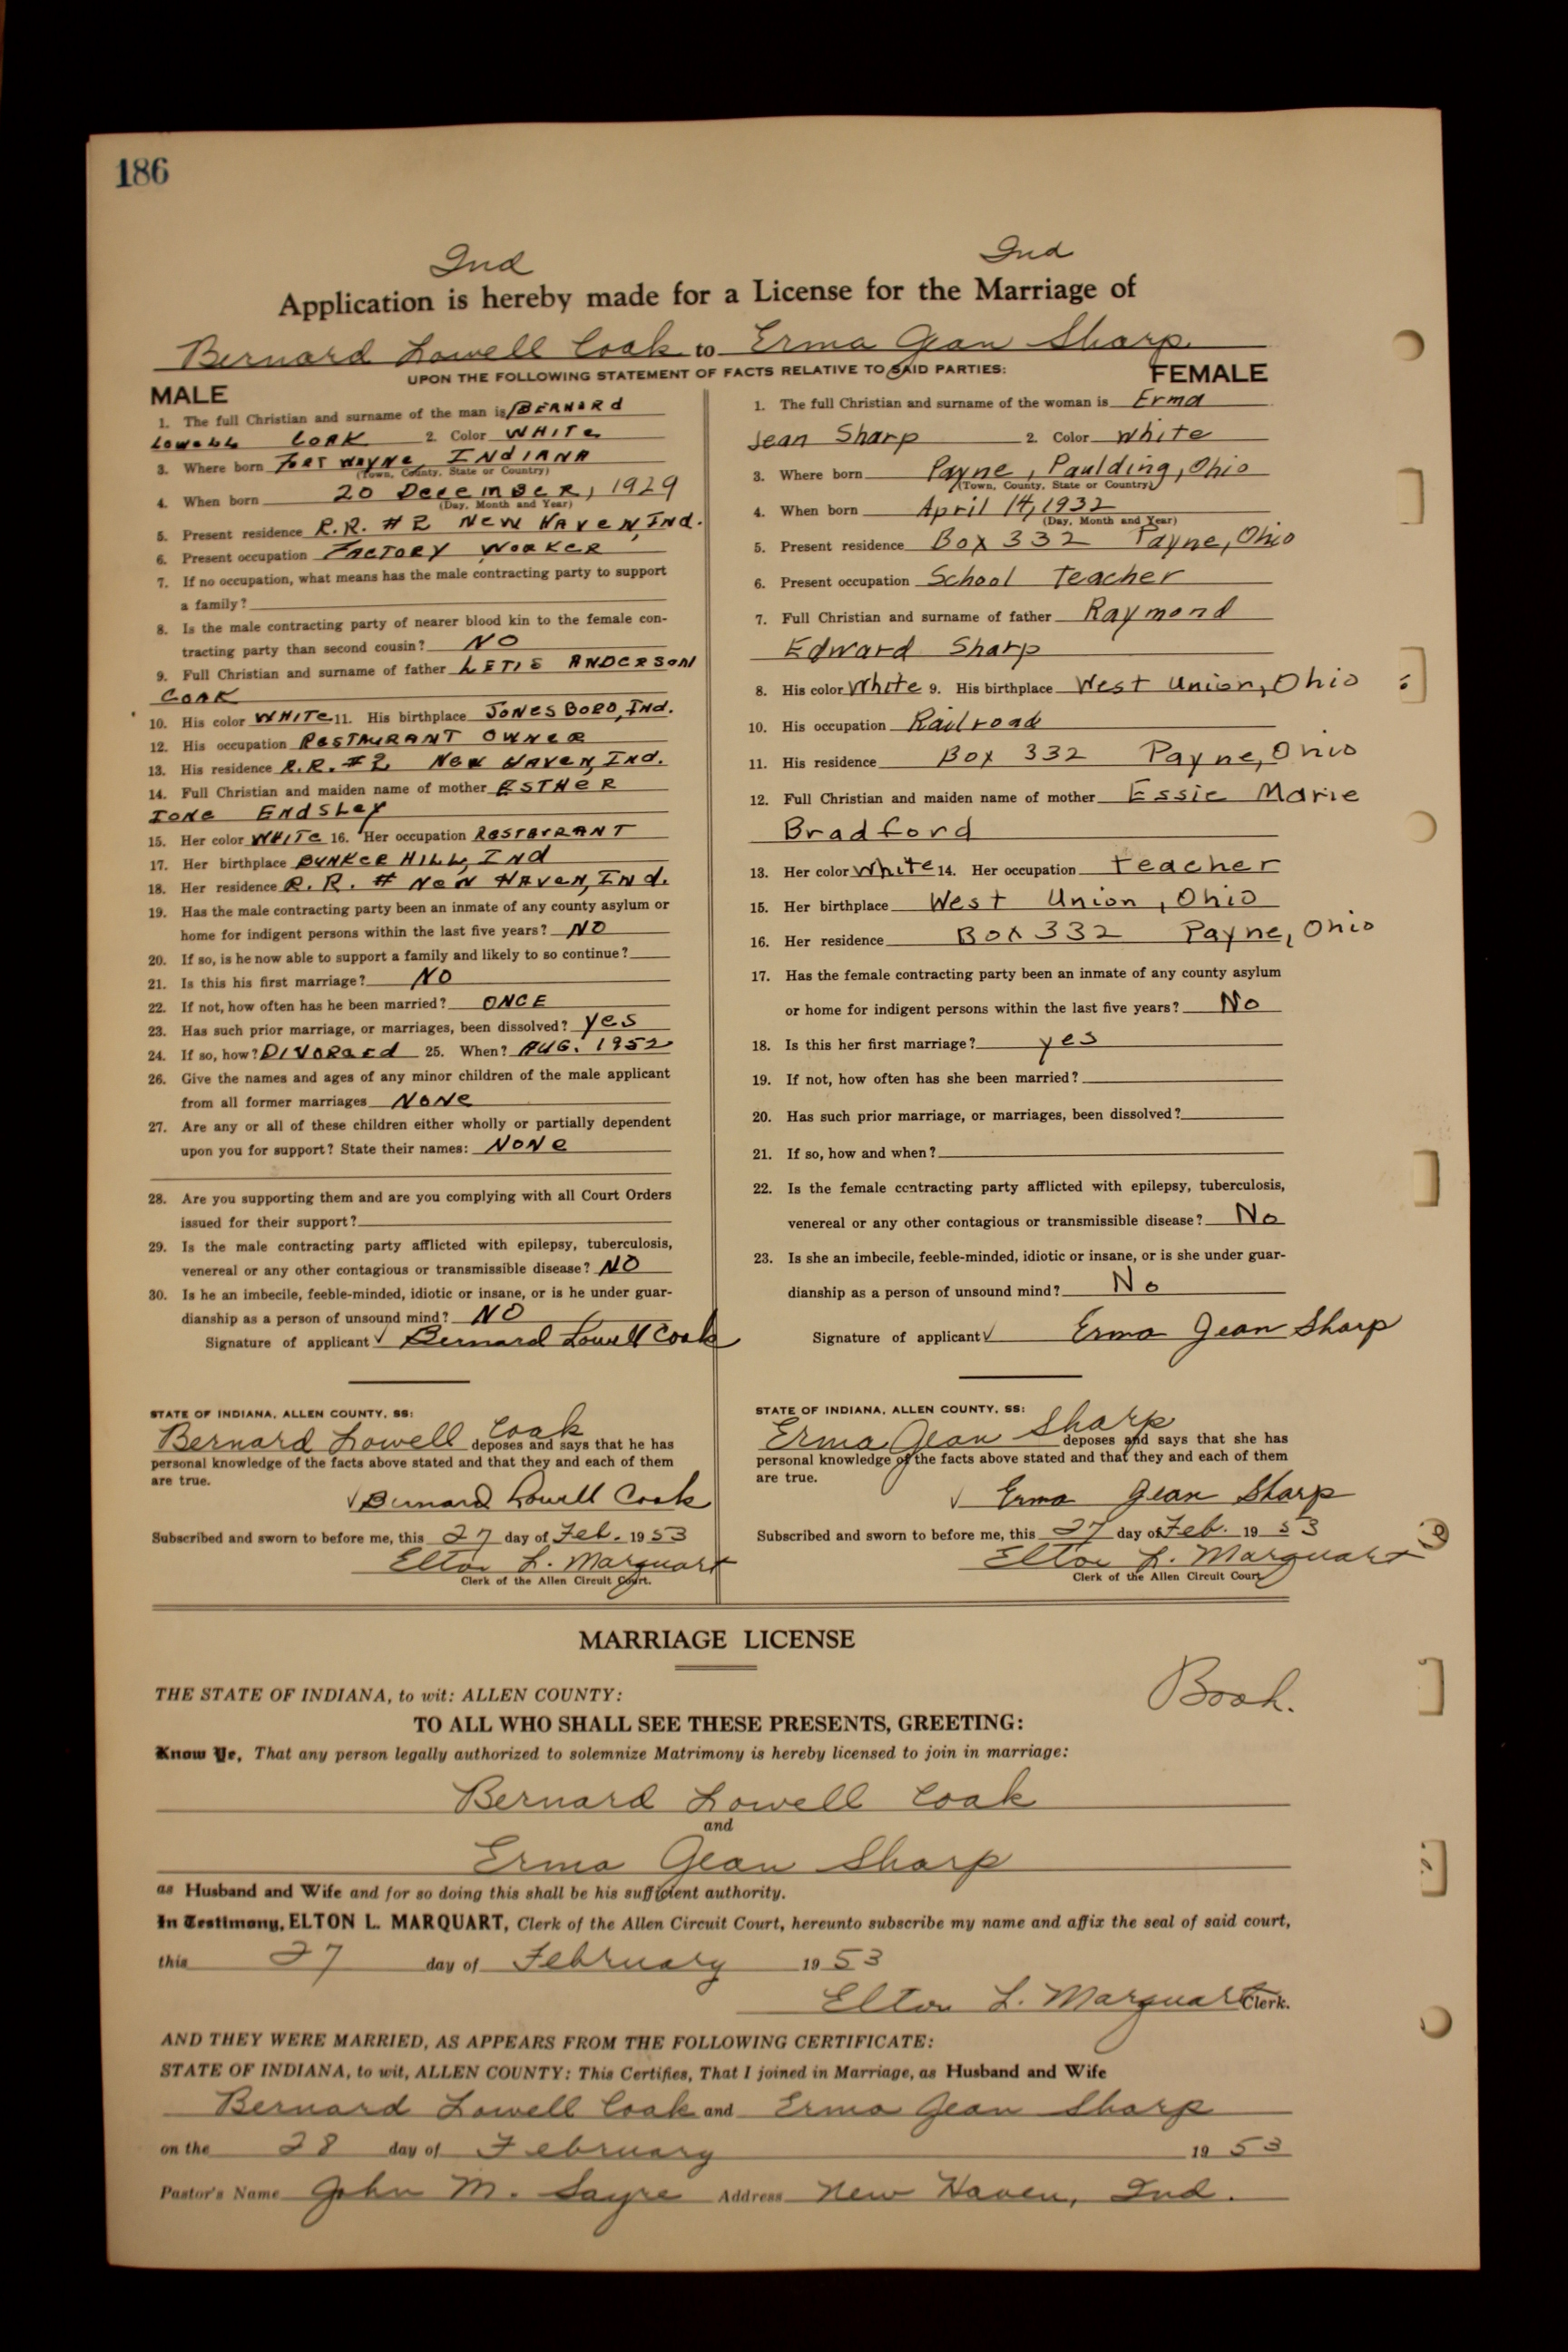 186
Ind Ind
Application is hereby made for a License for the Marriage of
Bernard Lowell Coak to Erma Gean Sharp
UPON THE FOLLOWING STATEMENT OF FACTS RELATIVE TO SAID PARTIES:
MALE
1. The full Christian and surname of the man is BERNARD
LOWELL COAK 2. Color WHITE
3. Where born FORT WAYNE, INDIANA
(Town, County, State or Country)
4. When born 20 December, 1929
(Day, Month and Year)
5. Present residence R.R. #2 NEW HAVEN, IND.
6. Present occupation FACTORY WORKER
7. If no occupation, what means has the male contracting party to support
a family?
8. Is the male contracting party of nearer blood kin to the female con-
tracting party than second cousin? NO
9. Full Christian and surname of father LETIS ANDERSON
COAK
10. His color WHITE 11. His birthplace JONESBORO, Ind.
12. His occupation RESTAURANT OWNER
13. His residence R.R. #2 NEW HAVEN, IND.
14. Full Christian and maiden name of mother ESTHER
IONE ENDSLEY
15. Her color WHITE 16. Her occupation RESTAURANT
17. Her birthplace BUNKER HILL, IND
18. Her residence R.R. # NEW HAVEN, IND.
19. Has the male contracting party been an inmate of any county asylum or
home for indigent persons within the last five years? NO
20. If so, is he now able to support a family and likely to so continue?
21. Is this his first marriage? NO
22. If not, how often has he been married? ONCE
23. Has such prior marriage, or marriages, been dissolved? yes
24. If so, how? DIVORACED 25. When? AUG. 1952
26. Give the names and ages of any minor children of the male applicant
from all former marriages NONE
27. Are any or all of these children either wholly or partially dependent
upon you for support? State their names: NONE
28. Are you supporting them and are you complying with all Court Orders
issued for their support?
29. Is the male contracting party afflicted with epilepsy, tuberculosis,
venereal or any other contagious or transmissible disease? NO
30. Is he an imbecile, feeble-minded, idiotic or insane, or is he under guar-
dianship as a person of unsound mind? NO
Signature of applicant ✓ Bernard Lowell Coak
STATE OF INDIANA, ALLEN COUNTY, SS:
Bernard Lowell Coak deposes and says that he has
personal knowledge of the facts above stated and that they and each of them
are true.
✓ Bernard Lowell Coak
Subscribed and sworn to before me, this 27 day of Feb. 1953
Elton L. Marquart
Clerk of the Allen Circuit Court.
FEMALE
1. The full Christian and surname of the woman is Erma
Jean Sharp 2. Color White
3. Where born Payne, Paulding, Ohio
(Town, County, State or Country)
4. When born April 14, 1932
(Day, Month and Year)
5. Present residence Box 332 Payne, Ohio
6. Present occupation School Teacher
7. Full Christian and surname of father Raymond
Edward Sharp
8. His color White 9. His birthplace West Union, Ohio
10. His occupation Railroad
11. His residence Box 332 Payne, Ohio
12. Full Christian and maiden name of mother Essie Marie
Bradford
13. Her color White 14. Her occupation Teacher
15. Her birthplace West Union, Ohio
16. Her residence Box 332 Payne, Ohio
17. Has the female contracting party been an inmate of any county asylum
or home for indigent persons within the last five years? No
18. Is this her first marriage? yes
19. If not, how often has she been married?
20. Has such prior marriage, or marriages, been dissolved?
21. If so, how and when?
22. Is the female contracting party afflicted with epilepsy, tuberculosis,
venereal or any other contagious or transmissible disease? No
23. Is she an imbecile, feeble-minded, idiotic or insane, or is she under guar-
dianship as a person of unsound mind? No
Signature of applicant ✓ Erma Gean Sharp
STATE OF INDIANA, ALLEN COUNTY, SS:
Erma Gean Sharp deposes and says that she has
personal knowledge of the facts above stated and that they and each of them
are true.
✓ Erma Gean Sharp
Subscribed and sworn to before me, this 27 day of Feb. 1953
Elton L. Marquart
Clerk of the Allen Circuit Court
MARRIAGE LICENSE
THE STATE OF INDIANA, to wit: ALLEN COUNTY:
Book.
TO ALL WHO SHALL SEE THESE PRESENTS, GREETING:
Know Ye, That any person legally authorized to solemnize Matrimony is hereby licensed to join in marriage:
Bernard Lowell Coak
and
Erma Gean Sharp
as Husband and Wife and for so doing this shall be his sufficient authority.
In Testimony, ELTON L. MARQUART, Clerk of the Allen Circuit Court, hereunto subscribe my name and affix the seal of said court,
this 27 day of February 1953
Elton L. Marquart Clerk.
AND THEY WERE MARRIED, AS APPEARS FROM THE FOLLOWING CERTIFICATE:
STATE OF INDIANA, to wit, ALLEN COUNTY: This Certifies, That I joined in Marriage, as Husband and Wife
Bernard Lowell Coak and Erma Gean Sharp
on the 28 day of February 1953
Pastor's Name John M. Sayre Address New Haven, Ind.